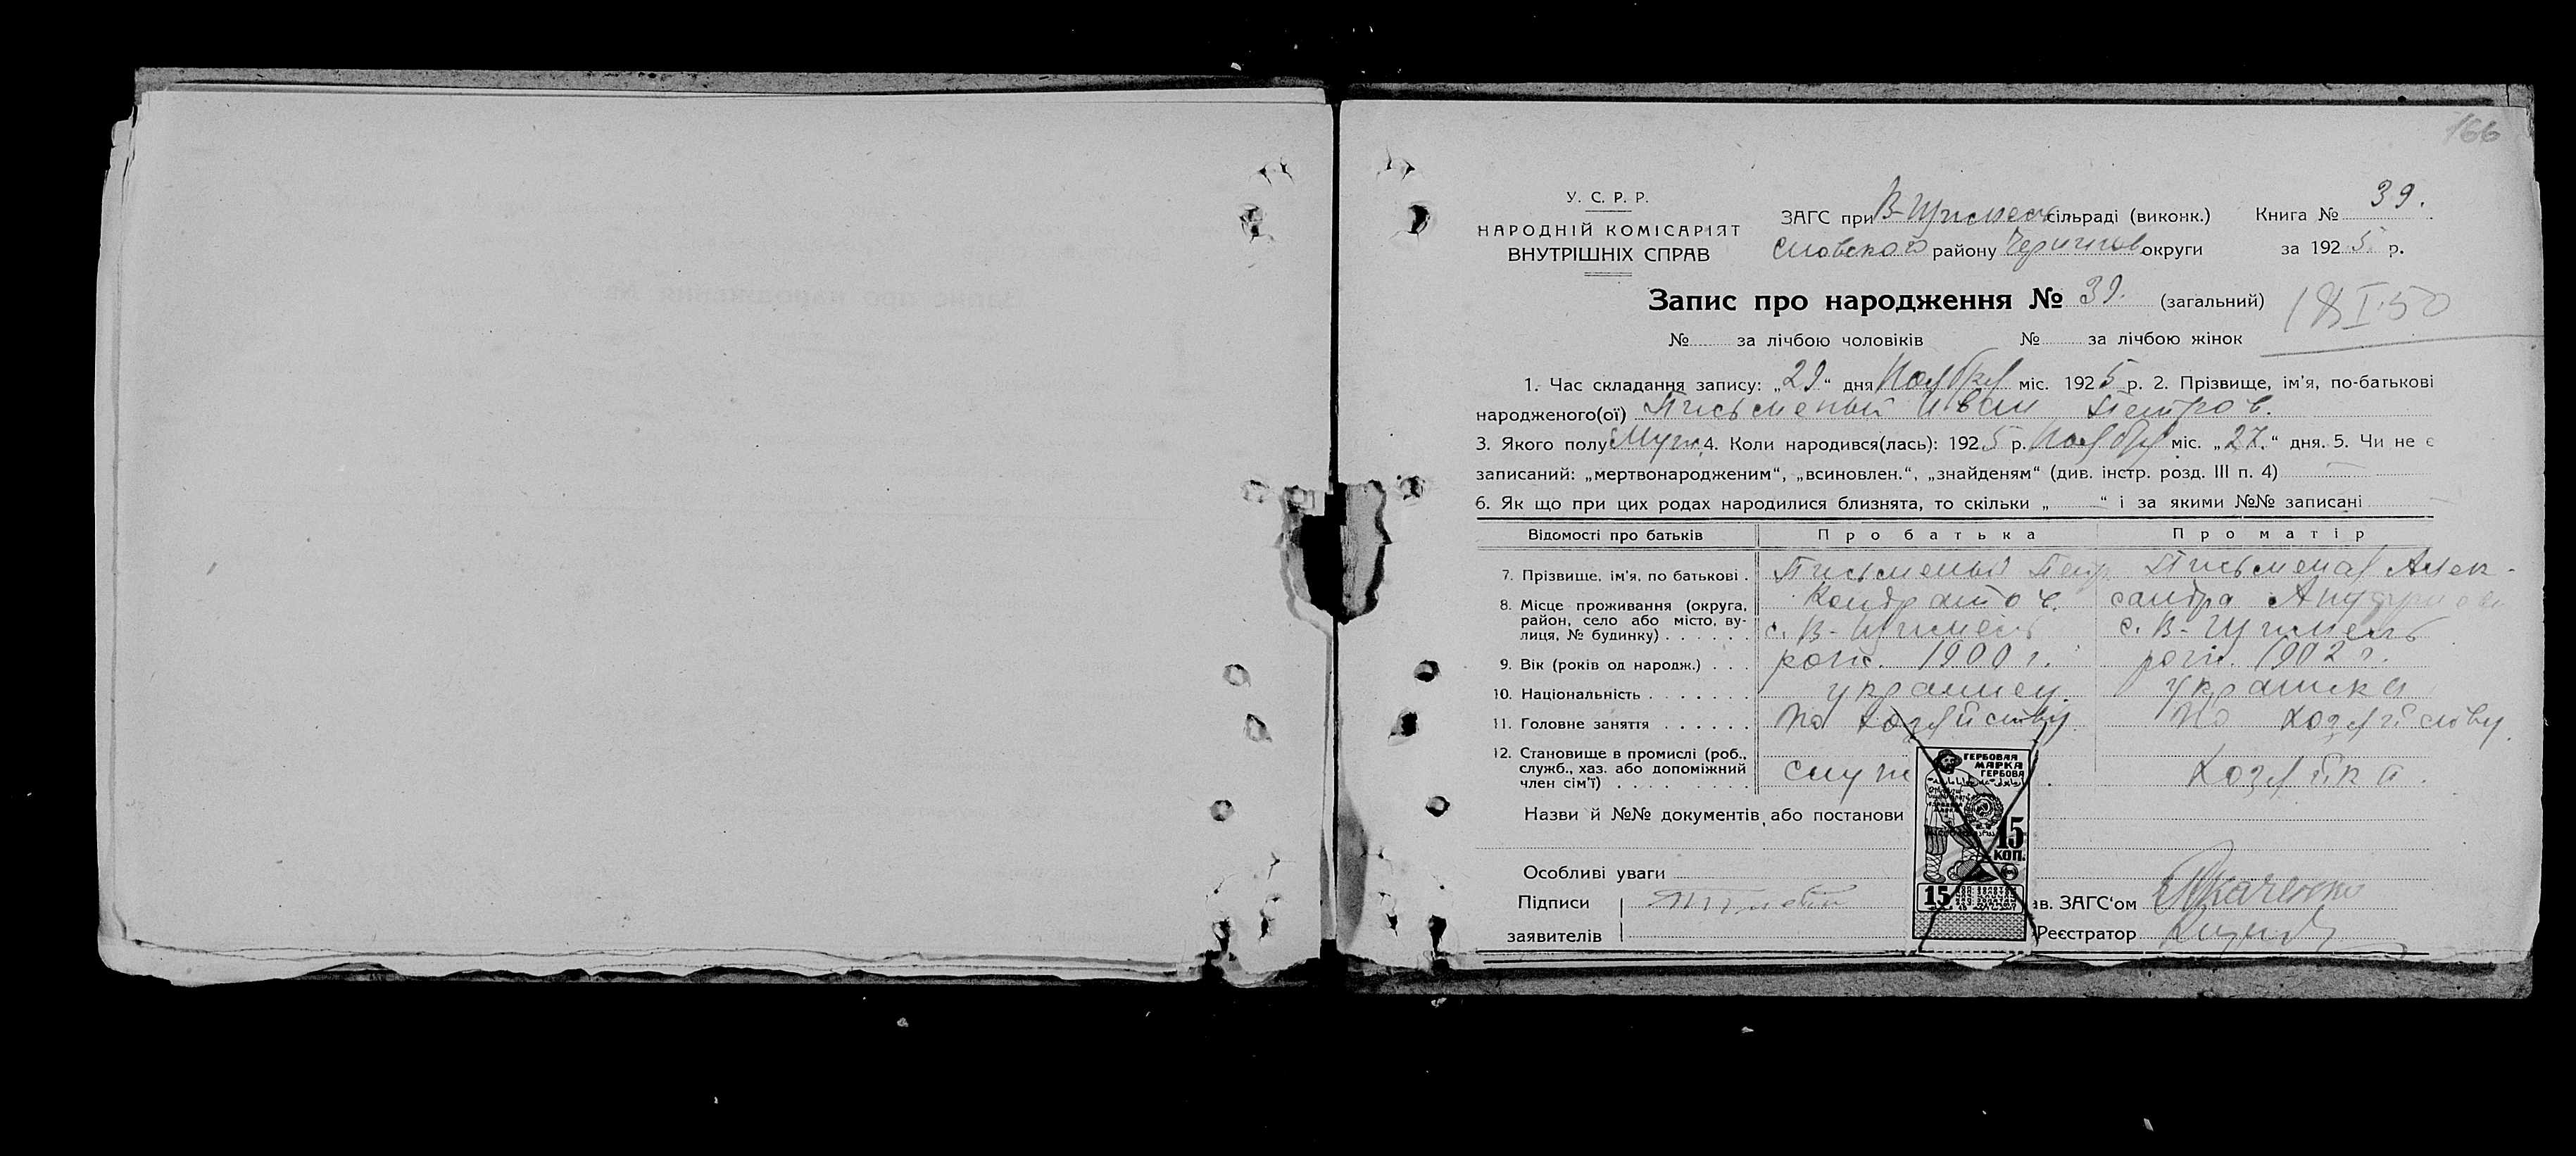 166
У. С. Р. Р.
НАРОДНІЙ КОМІСАРІЯТ
ВНУТРІШНІХ СПРАВ
ЗАГС при В-Щимель сільраді (виконк.) Книга № 39.
сновской району Чернигов округи за 1925 р.
Запис про народження № 39. (загальний)
18 I 50
№ за лічбою чоловіків № за лічбою жінок
1. Час складання запису: „29“ дня Ноября міс. 1925 р. 2. Прізвище, ім'я, по-батькові
народженого(ої) Письменый Иван Петров.
3. Якого полу Муж. 4. Коли народився(лась): 1925 р. Ноября міс. „27.“ дня. 5. Чи не є
записаний: „мертвонародженим“, „всиновлен.“, „знайденям“ (див. інстр. розд. III п. 4)
6. Як що при цих родах народилися близнята, то скільки „ “ і за якими №№ записані
Відомості про батьків Про батька Про матір
7. Прізвище, ім'я, по батькові . Письменый Петр Письменая Алек-
Кондратов. сандра
8. Місце проживання (округа, район, село або місто, вулиця, № будинку) . . . . . . с. В-Щимель с. В-Щимель
9. Вік (років од народж.) . . . рожд. 1900 г. рожд. 1902 г.
10. Національність . . . . . . . украинец украинка
11. Головне заняття . . . . . . По хозяйству По хозяйству
12. Становище в промислі (роб., служб., хаз. або допоміжний член сім'ї) . . . . . . . . . Хозяйка.
Назви й №№ документів, або постанови
ГЕРБОВАЯ
МАРКА
ГЕРБОВА
15
КОП.
15
Особливі уваги
Підписи
заявителів
ав. ЗАГС'ом Ткаченко
Реєстратор